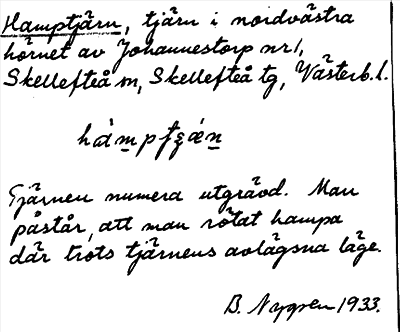 Hamptjärn, tjärn i nordvästra
hörnet av Johannestorp nr 1,
Skellefteå sn, Skellefteå tg, Västerb. l.
Tjärnen numera utgrävd. Man
påstår, att man rötat hampa
där trots tjärnens avlägsna läge.
B. Nygren 1933.